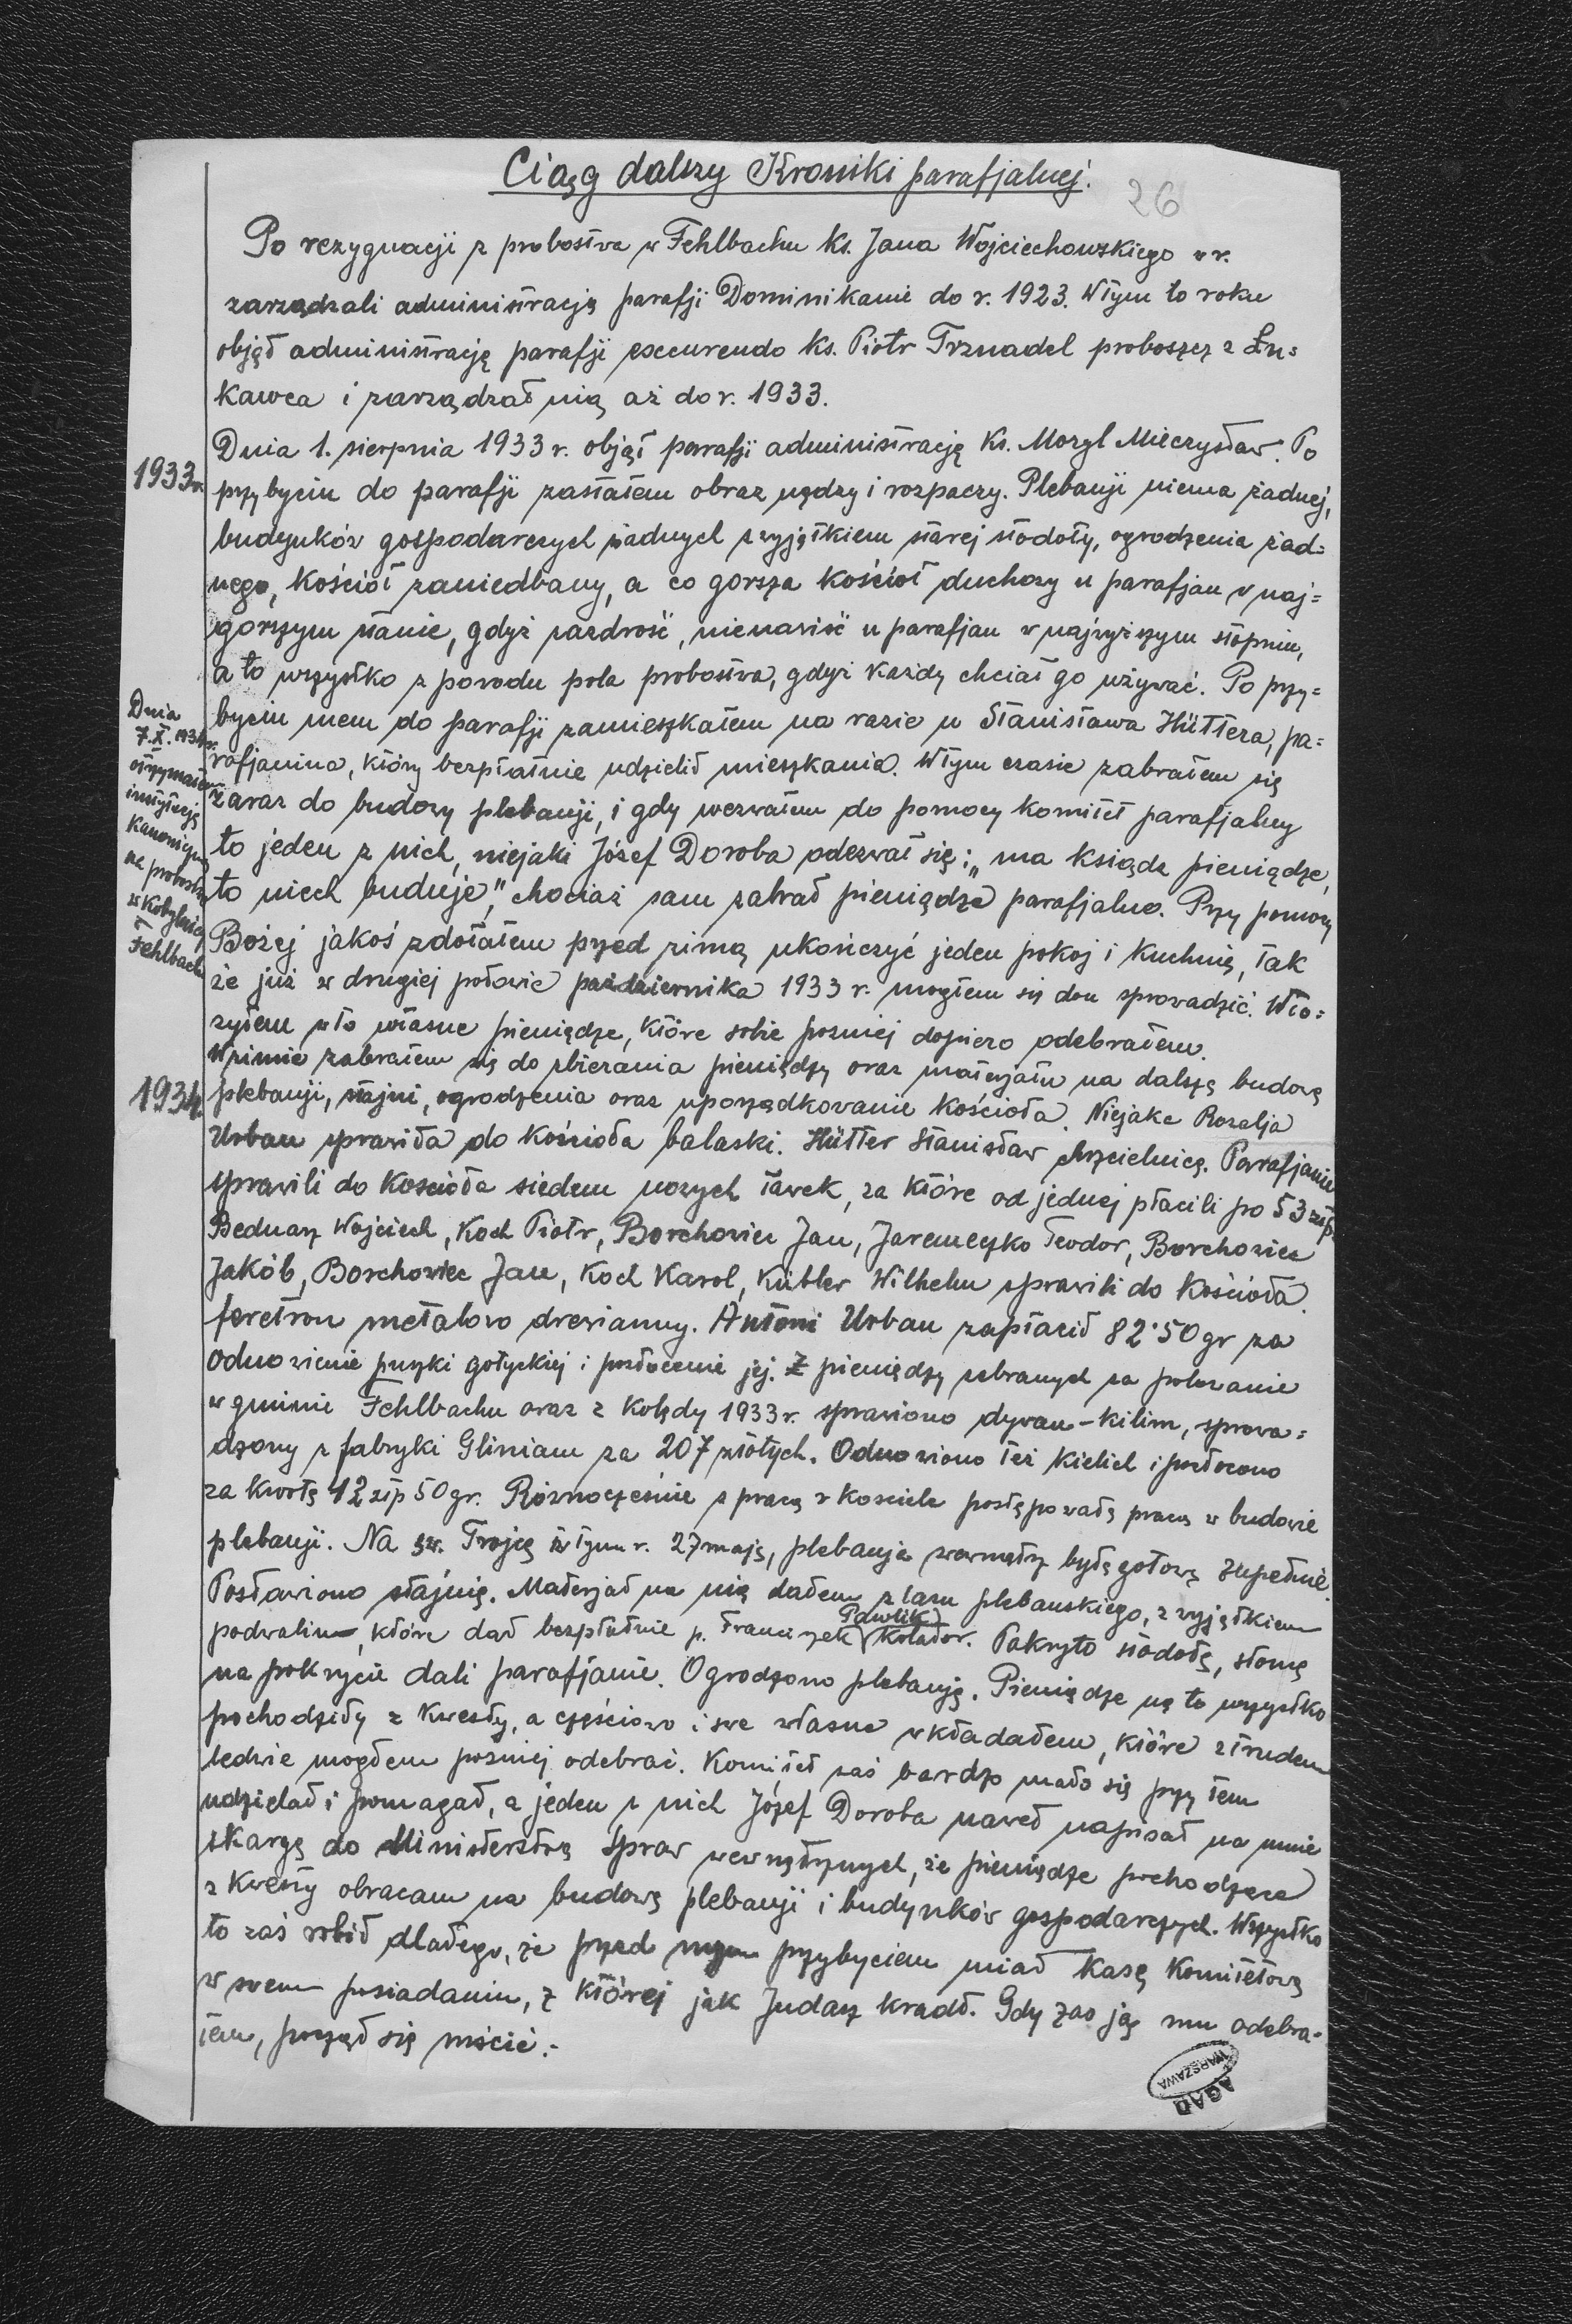 Ciąg dalszy Kroniki parafjalnej.
26
Po rezygnacji z probostwa w Fehlbachu ks. Jana Wojciechowskiego w r.
zarządzali administracją parafji Dominikanie do r. 1923. W tym to roku
objął administrację parafji excurrendo ks. Piotr Trznadel proboszcz z Łu=
kawca i zarządzał nią aż do r. 1933.
1933 r.
Dnia 1. sierpnia 1933 r. objął parafji administrację ks. Mozyl Mieczysław. Po
przybyciu do parafji zastałem obraz nędzy i rozpaczy. Plebanji niema żadnej,
budynków gospodarczych żadnych z wyjątkiem starej stodoły, ogrodzenia żad=
nego, kościół zaniedbany, a co gorsza kościół duchowy u parafjan w naj=
gorszym stanie, gdyż zazdrość, nienawiść u parafjan w najwyższym stopniu,
a to wszystko z powodu pola probostwa, gdyż każdy chciał go używać. Po przy=
byciu mem do parafji zamieszkałem na razie u Stanisława Hüttera, pa=
rafjanina, który bezpłatnie udzielił mieszkania. W tym czasie zabrałem się
zaraz do budowy plebanji, i gdy wezwałem do pomocy komitet parafjalny
to jeden z nich, niejaki Józef Doroba odezwał się: „ma ksiądz pieniądze,
to niech buduje", chociaż sam zabrał pieniądze parafjalne. Przy pomocy
Bożej jakoś zdołałem przed zimą ukończyć jeden pokój i kuchnię, tak
że już w drugiej połowie października 1933 r. mogłem się don sprowadzić. Wło=
żyłem w to własne pieniądze, które sobie pozniej dopiero odebrałem.
Dnia
7.X.1934 r.
otrzymałem
instytucję
kanoniczną
na probostwo
w Kobylnicy
Fehlbach
W zimie zabrałem się do zbierania pieniędzy oraz materjału na dalszą budowę
1934.
plebanji, stajni, ogrodzenia oraz uporządkowanie kościoła. Niejaka Rozalja
Urban sprawiła do kościoła balaski. Hütter Stanisław chrzcielnicę. Parafjanie
sprawili do kościoła siedem nowych ławek, za które od jednej płacili po 53 złp.
Bednarz Wojciech, Koch Piotr, Borchowiec Jan, Jaremeczko Teodor, Borchowiec
Jakób, Borchowiec Jan, Koch Karol, Kübler Wilhelm sprawili do kościoła
feretron metalowo drewianny. Antoni Urban zapłacił 82·50 gr za
odnowienie puszki gotyckiej i pozłocenie jej. Z pieniędzy zebranych za polowanie
w gminie Fehlbachu oraz z kolędy 1933 r. sprawiono dywan-kilim, sprowa=
dzony z fabryki Glinian za 207 złotych. Odnowiono też kielich i pozłocono
za kwotę 12 złp 50 gr. Równocześnie z pracą w kosciele postępowała praca w budowie
plebanji. Na św. Trojcę w tym r. 27 maja, plebanja wewnątrz była gotowa zupełnie.
Postawiono stajnię. Materjał na nią dałem z lasu plebanskiego, z wyjątkiem
podwalin, które dał bezpłatnie p. Franciszek Pawlik Kolator. Pokryto stodołę, słomę
na pokrycie dali parafjanie. Ogrodzono plebanję. Pieniądze na to wszystko
pochodziły z kwesty, a częściowo i swe własne wkładałem, które z trudem
ledwie mogłem pozniej odebrać. Komitet zaś bardzo mało się przy tem
udzielał i pomagał, a jeden z nich Józef Doroba nawet napisał na mnie
skargę do Ministerstwa Spraw wewnętrznych, że pieniądze pochodzące
z kwesty obracam na budowę plebanji i budynków gospodarczych. Wszystko
to zaś robił dlatego, że przed mym przybyciem miał kasę komitetową
w swem posiadaniu, z której jak Judasz kradł. Gdy zaś ją mu odebra=
łem, począł się mścić.-
AGAD
WARSZAWA